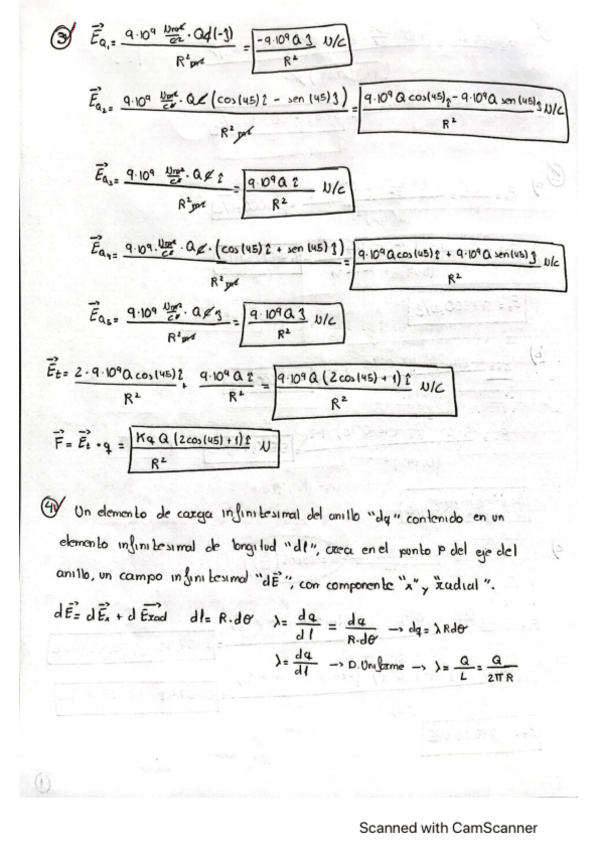 ③ E⃗Q₁ = 9·10⁹ Nm²/C² · Q₡(-ĵ) / R² m² = -9·10⁹ Q ĵ / R² N/C
E⃗Q₂ = 9·10⁹ Nm²/C² · Q₡ (cos(45)î - sen(45)ĵ) / R² m² = 9·10⁹ Q cos(45)î - 9·10⁹ Q sen(45)ĵ / R² N/C
E⃗Q₃ = 9·10⁹ Nm²/C² · Q₡ î / R² m² = 9·10⁹ Q î / R² N/C
E⃗Q₄ = 9·10⁹ · Nm²/C² · Q₡ · (cos(45)î + sen(45)ĵ) / R² m² = 9·10⁹ Q cos(45)î + 9·10⁹ Q sen(45)ĵ / R² N/C
E⃗Q₅ = 9·10⁹ Nm²/C² · Q₡ ĵ / R² m² = 9·10⁹ Q ĵ / R² N/C
E⃗t = 2·9·10⁹ Q cos(45)î / R² + 9·10⁹ Q î / R² = 9·10⁹ Q (2cos(45) + 1) î / R² N/C
F⃗ = E⃗t · q = K q Q (2cos(45) + 1) î / R² N
④ Un elemento de carga infinitesimal del anillo "dq" contenido en un
elemento infinitesimal de longitud "dl", crea en el punto P del eje del
anillo, un campo infinitesimal "dE⃗", con componente "x" y "radial".
dE⃗ = dE⃗x + dE⃗rad dl = R·dθ λ = dq/dl = dq/R·dθ → dq = λRdθ
λ = dq/dl → D. Uniforme → λ = Q/L = Q/2πR
①
Scanned with CamScanner